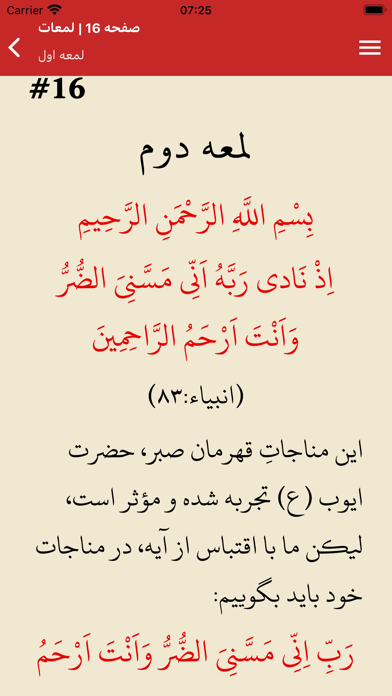 Carrier 07:25
صفحه 16 | لمعات
لمعه اول
#16
لمعه دوم
بِسْمِ اللَّهِ الرَّحْمَنِ الرَّحِيمِ
اِذْ نَادى رَبَّهُ اَنِّى مَسَّنِىَ الضُّرُّ
وَاَنْتَ اَرْحَمُ الرَّاحِمِينَ
(انبیاء:۸۳)
این مناجاتِ قهرمان صبر، حضرت
ایوب (ع) تجربه شده و مؤثر است،
لیکن ما با اقتباس از آیه، در مناجات
خود باید بگوییم:
رَبِّ اِنِّى مَسَّنِىَ الضُّرُّ وَاَنْتَ اَرْحَمُ